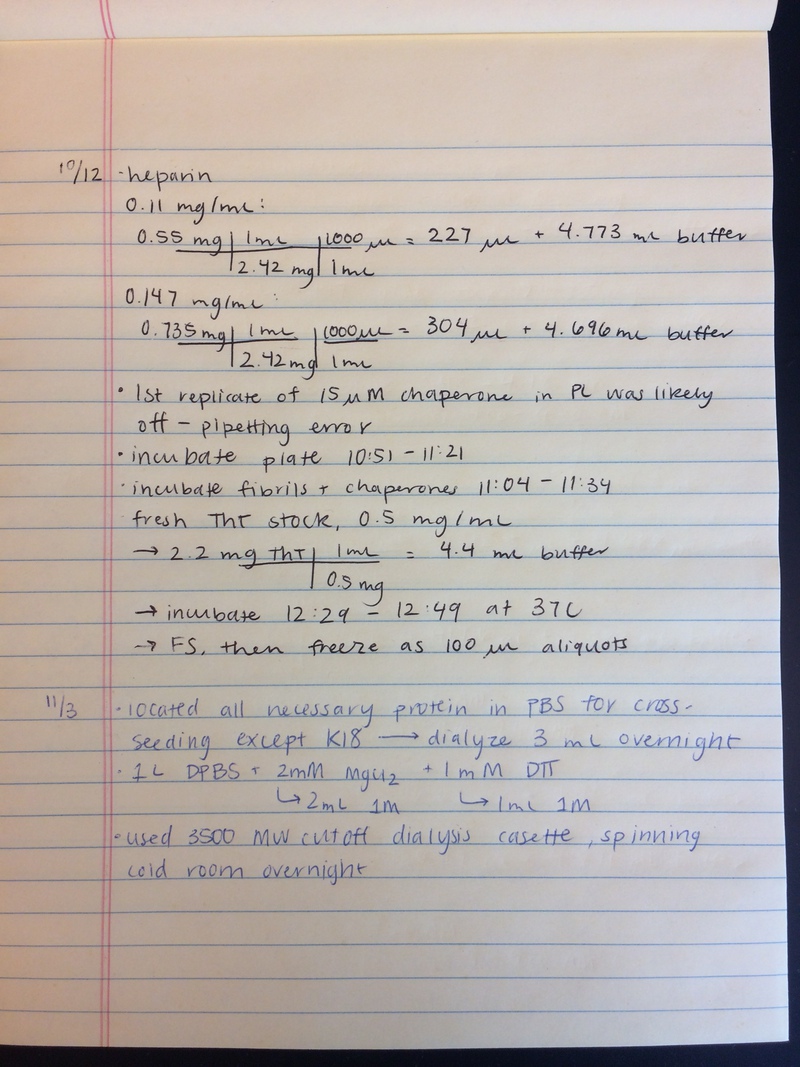 10/12 - heparin
0.11 mg/mL:
0.55 mg | 1mL | 1000 µL = 227 µL + 4.773 mL buffer
| 2.42 mg | 1mL
0.147 mg/mL:
0.735mg | 1mL | 1000µL = 304 µL + 4.696mL buffer
| 2.42mg | 1mL
• 1st replicate of 15µM chaperone in PL was likely
off - pipetting error
• incubate plate 10:51 - 11:21
• incubate fibrils + chaperones 11:04 - 11:34
fresh ThT stock, 0.5 mg/mL
→ 2.2 mg ThT | 1mL = 4.4 mL buffer
| 0.5mg
→ incubate 12:29 - 12:49 at 37C
→ FS, then freeze as 100 µL aliquots
11/3 • located all necessary protein in PBS for cross-
seeding except K18 → dialyze 3 mL overnight
• 1L DPBS + 2mM MgCl2 + 1mM DTT
↳ 2mL 1M ↳ 1mL 1M
• used 3500 MW cutoff dialysis casette, spinning
cold room overnight